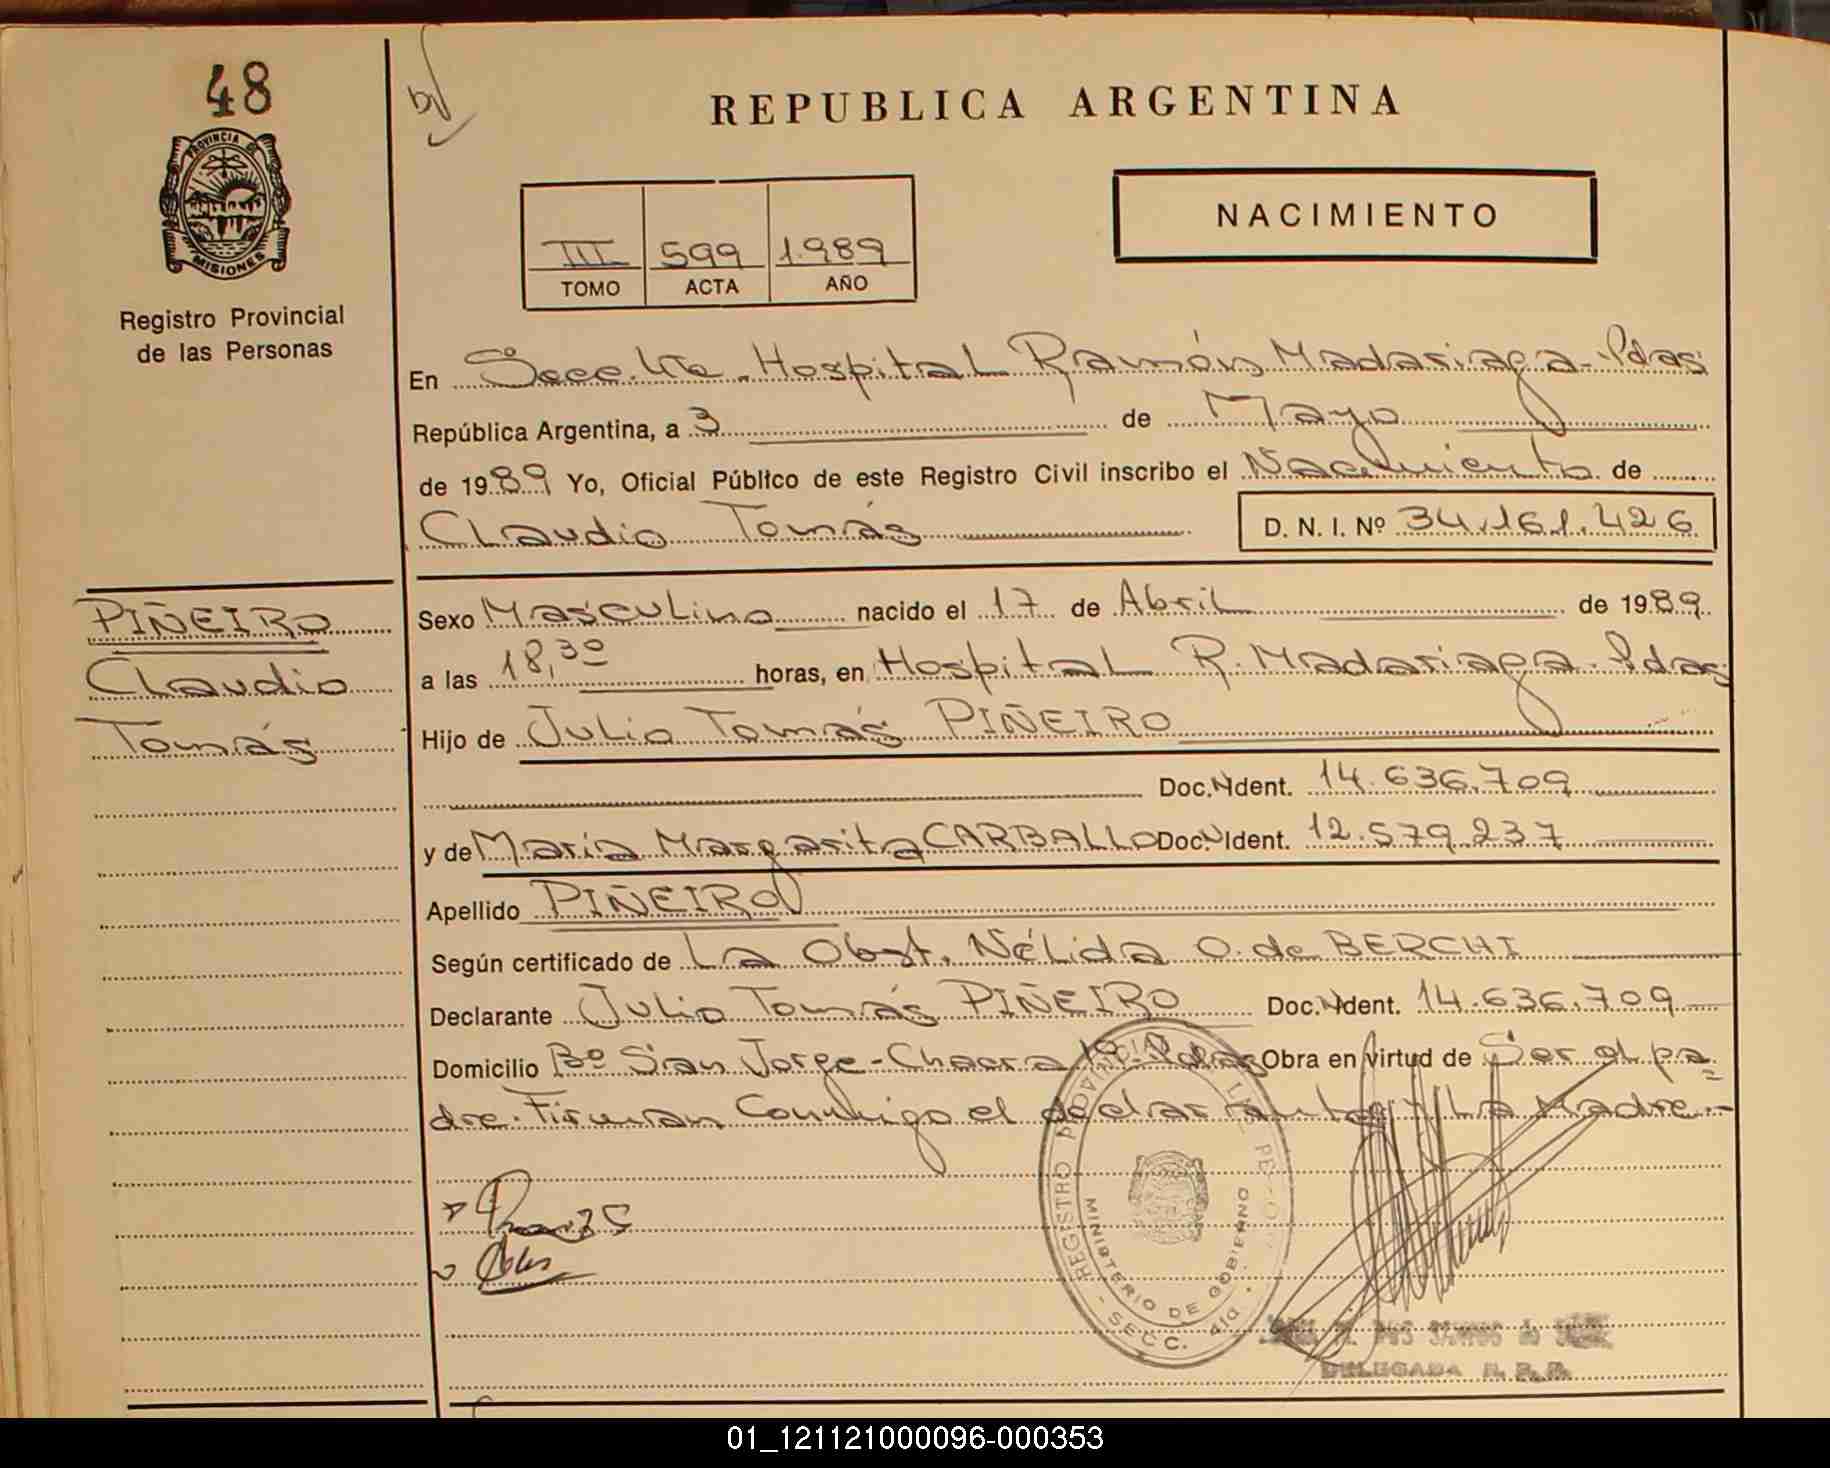 48
PROVINCIA DE
MISIONES
Registro Provincial
de las Personas
REPUBLICA ARGENTINA
NACIMIENTO
III 599 1.989
TOMO ACTA AÑO
En Secc. 4ta. Hospital Ramón Madariaga-Pdas
República Argentina, a 3 de Mayo
de 1989 Yo, Oficial Público de este Registro Civil inscribo el Nacimiento de
Claudio Tomás D. N. I. Nº 34.161.426
PIÑEIRO
Claudio
Tomás
Sexo Masculino nacido el 17 de Abril de 1989
a las 18,30 horas, en Hospital R. Madariaga-Pdas
Hijo de Julio Tomás PIÑEIRO
Doc. Ident. 14.636.709
y de María Margarita CARBALLO Doc. Ident. 12.579.237
Apellido PIÑEIRO
Según certificado de La Obst. Nélida O. de BERCHI
Declarante Julio Tomás PIÑEIRO Doc. Ident. 14.636.709
Domicilio Bº San Jorge-Chacra Pdas Obra en virtud de Ser el pa=
dre. Firman Conmigo el declarante y La Madre.-
REGISTRO PROVINCIAL DE LAS PERSONAS
MINISTERIO DE GOBIERNO
- SECC. 4ta
DELEGADA R. P. P.
01_121121000096-000353